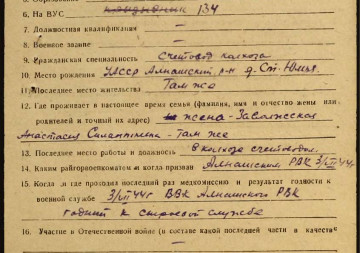 6. На ВУС кандидник 134
7. Должностная квалификация —
8. Военное звание —
9. Гражданская специальность счетовод колхоза
10. Место рождения УАССР Алнашский р-н д. Ст. Юмья.
11. Последнее место жительства Там же
12. Где проживает в настоящее время семья (фамилия, имя и отчество жены или
родителей и точный их адрес) жена - Заволжская
Анастасия - там же
13. Последнее место работы и должность В колхозе счетоводом.
14. Каким райгорвоенкоматом и когда призван Алнашским РВК 3/VII 44 г.
15. Когда и где проходил последний раз медкомиссию и результат годности к
военной службе 3/VII 44 г ВВК Алнашского РВК
годний к строевой службе
16. Участие в Отечественной войне (в составе какой последней части в качестве